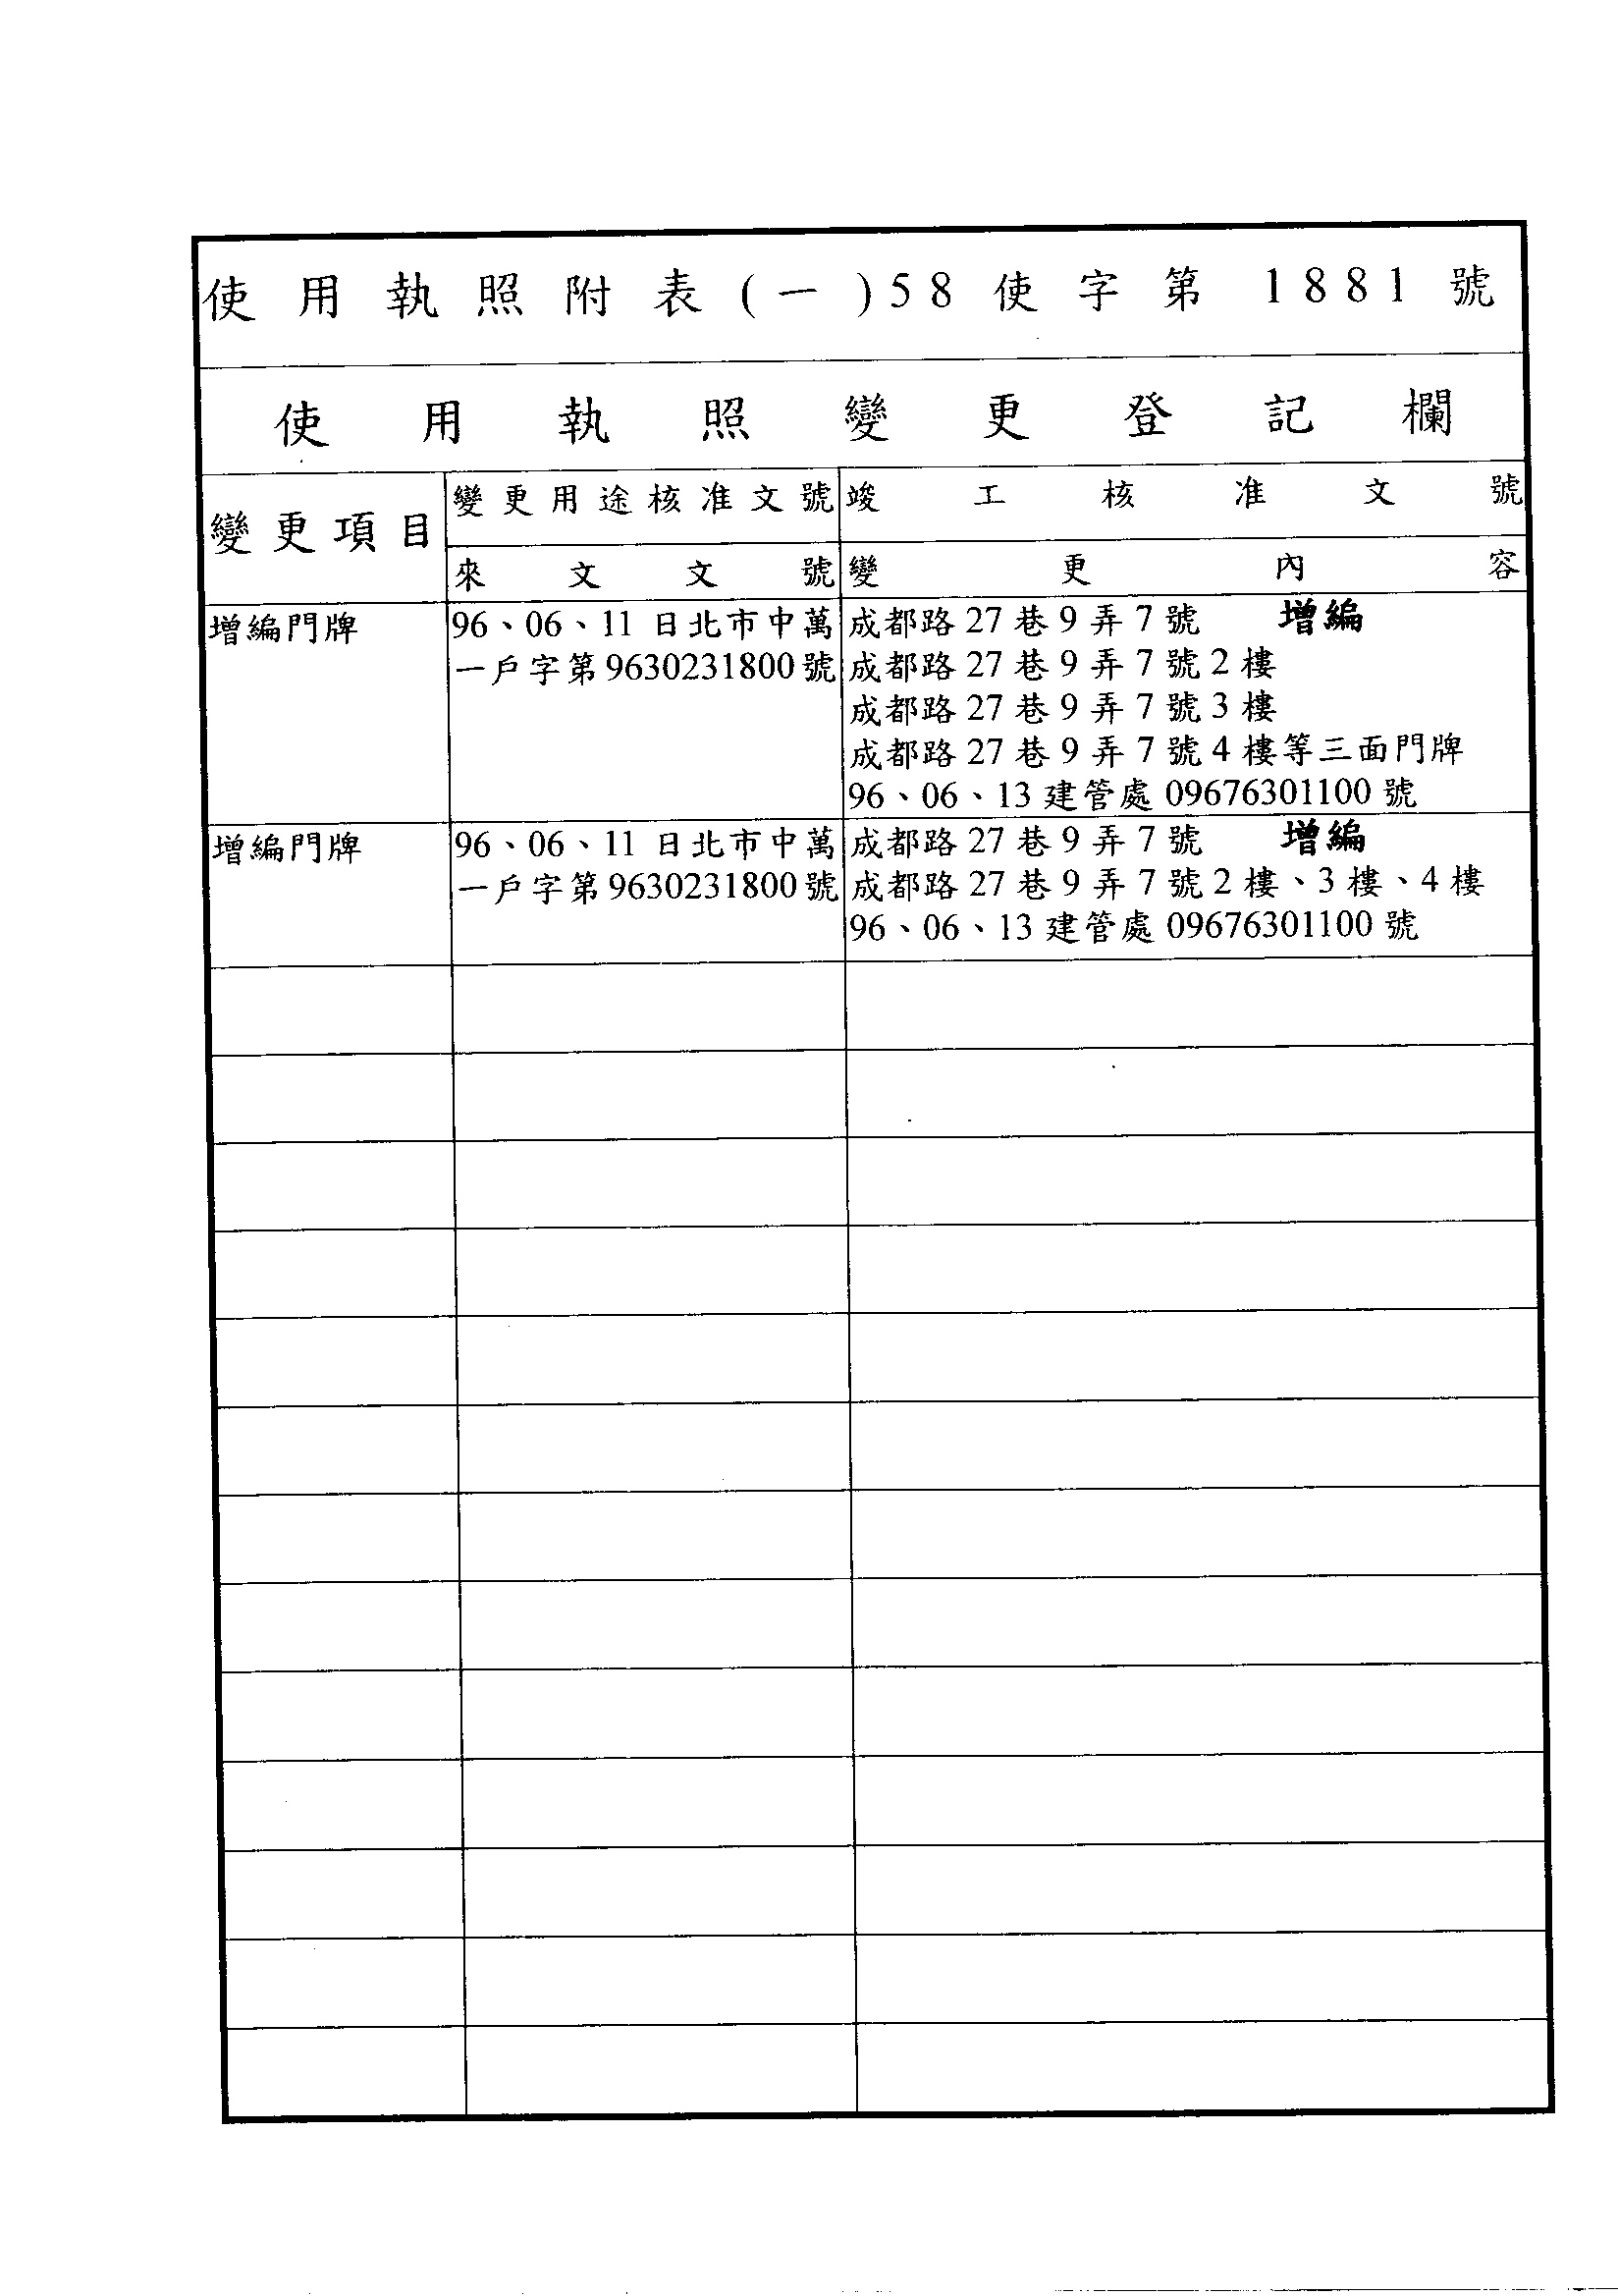 使用執照附表(一)58使字第1881號
使用執照變更登記欄
變更項目
變更用途核准文號
竣工核准文號
來文文號
變更內容
增編門牌
96、06、11日北市中萬
一戶字第9630231800號
成都路27巷9弄7號 增編
成都路27巷9弄7號2樓
成都路27巷9弄7號3樓
成都路27巷9弄7號4樓等三面門牌
96、06、13建管處09676301100號
增編門牌
96、06、11日北市中萬
一戶字第9630231800號
成都路27巷9弄7號 增編
成都路27巷9弄7號2樓、3樓、4樓
96、06、13建管處09676301100號